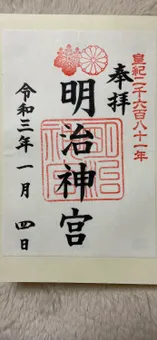 皇紀二千六百八十一年
奉拝
明治神宮
令和三年一月四日